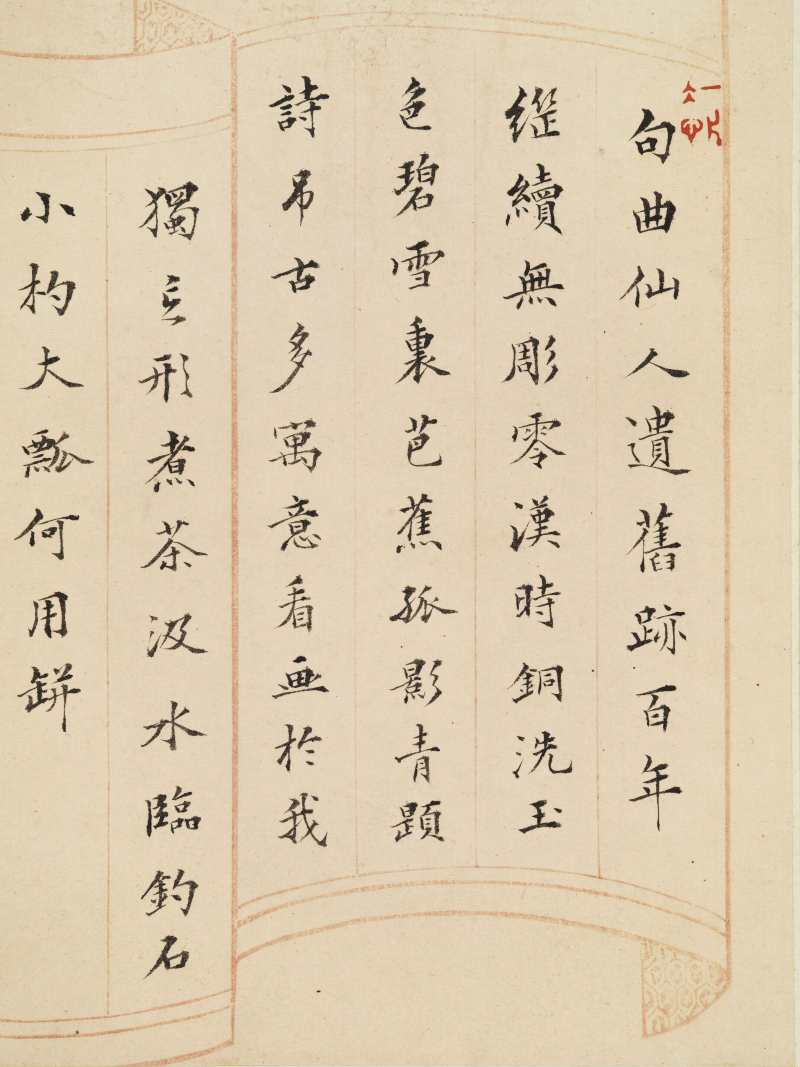 句曲仙人遺舊跡百年
繼續無彫零漢時銅洗玉
色碧雪裏芭蕉孤影青題
詩吊古多寓意看畫於我
獨立形煮茶汲水臨釣石
小杓大瓢何用缾